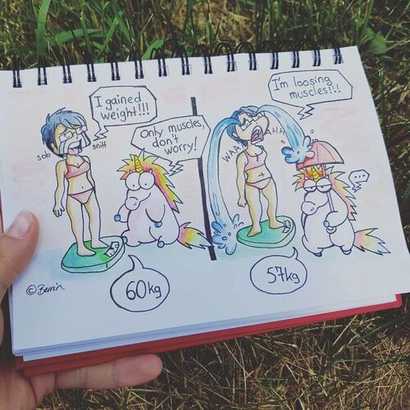 I gained
weight!!!
sob
sniff
Only muscles,
don't
worry!
60kg
I'm loosing
muscles!!!
WAA
HA
...
57kg